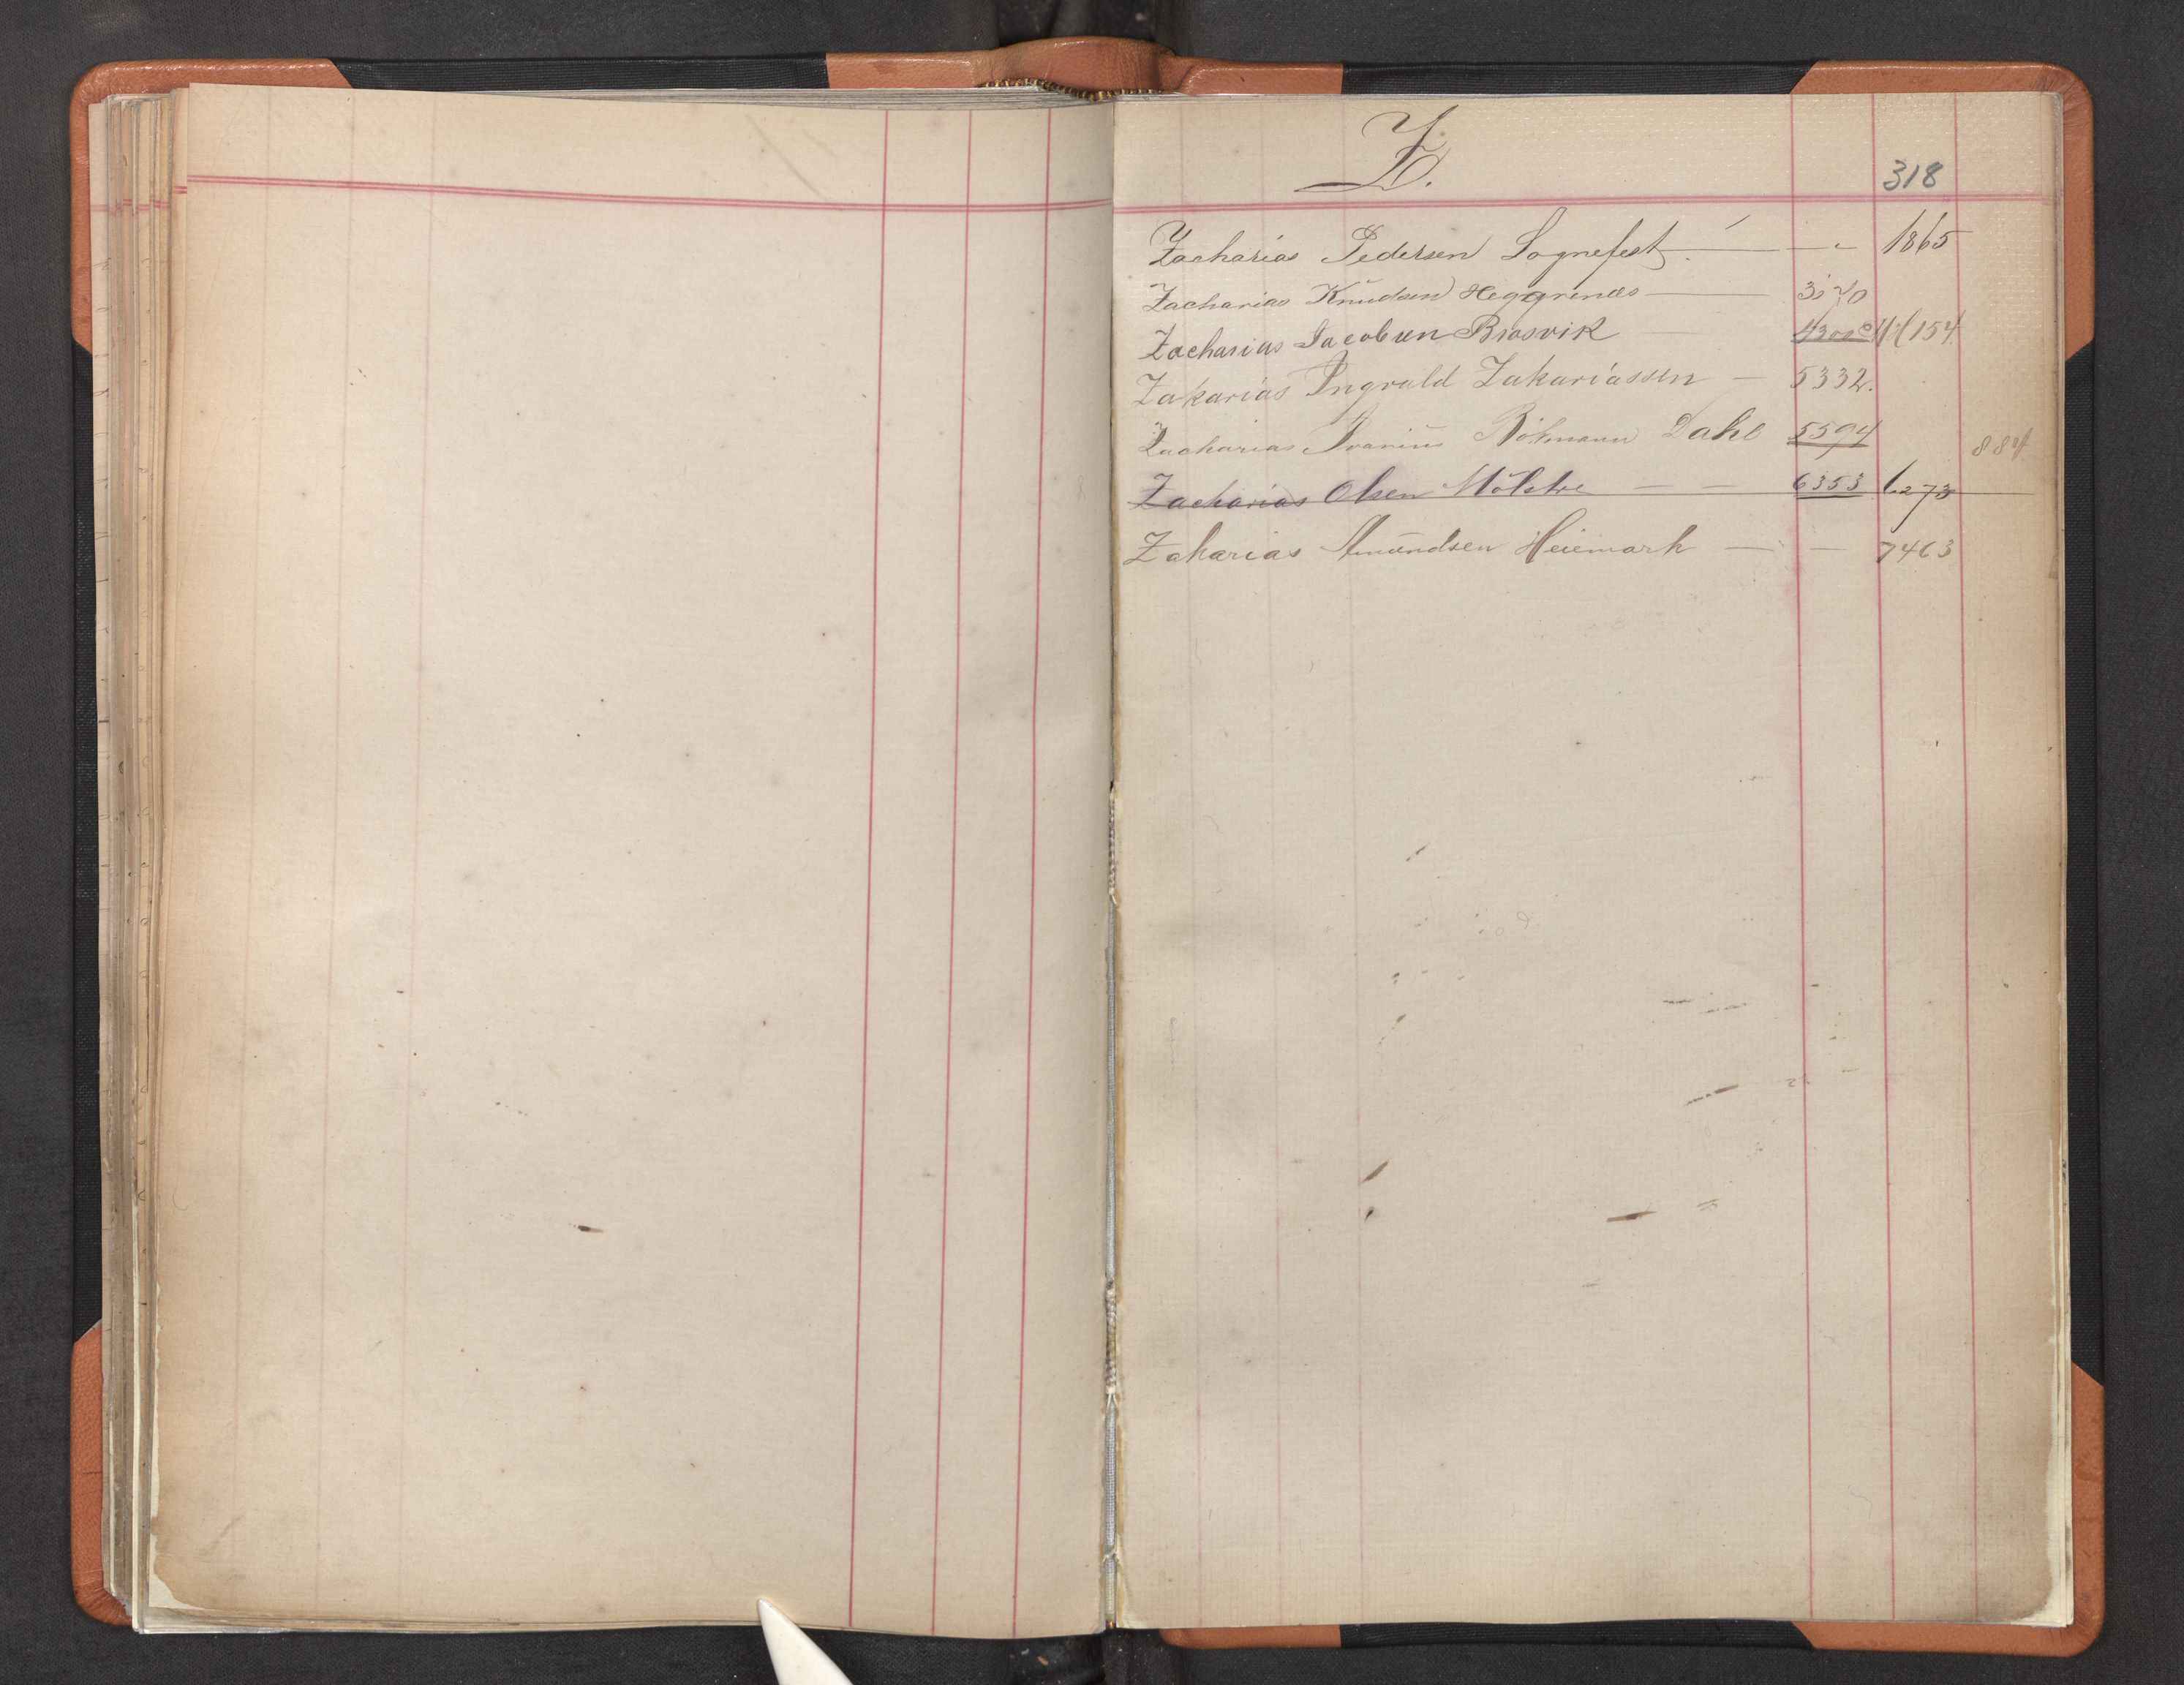 Z.
318
Zacharias Pedersen Sognefest. — — 1865
Zacharias Knudsen Heggrenæs — 3570
Zacharias Jacobsen Brosvik — 154
Zakarias Ingvald Zakariassen — 5332.
Zacharias Dahl 5594 884
Zacharias Olsen Mölstre — — 6353 6273
Zakarias Amundsen Heiemark — — 7463